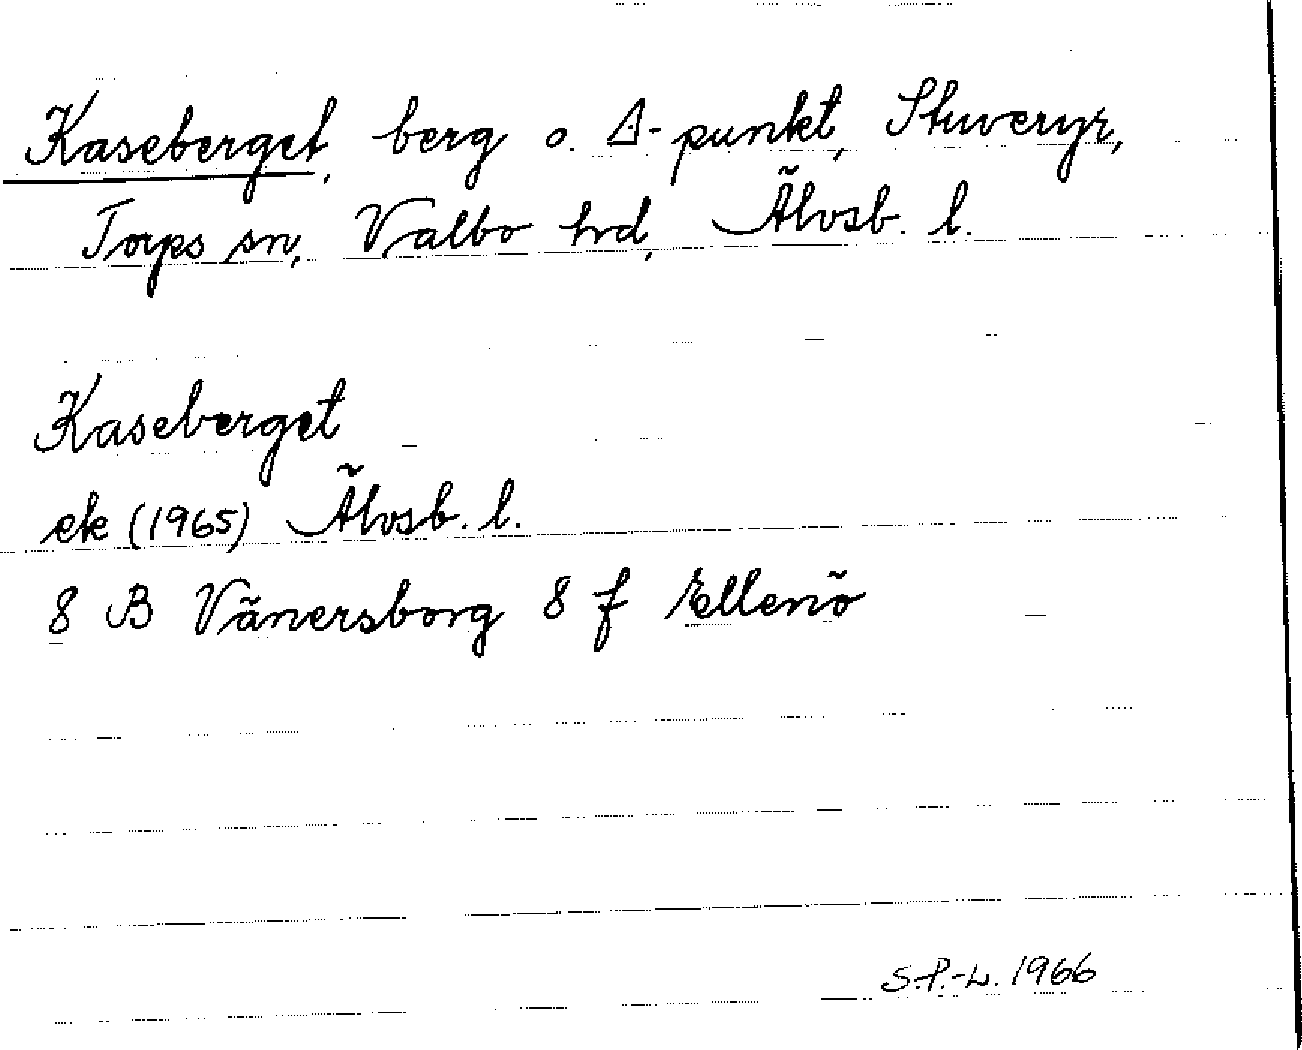 Kaseberget, berg o. Δ-punkt, Stuveryr,
Torps sn, Valbo hrd, Älvsb. l.
Kaseberget
ek (1965) Älvsb. l.
8 B Vänersborg 8 f Ellenö
S.P.-L. 1966